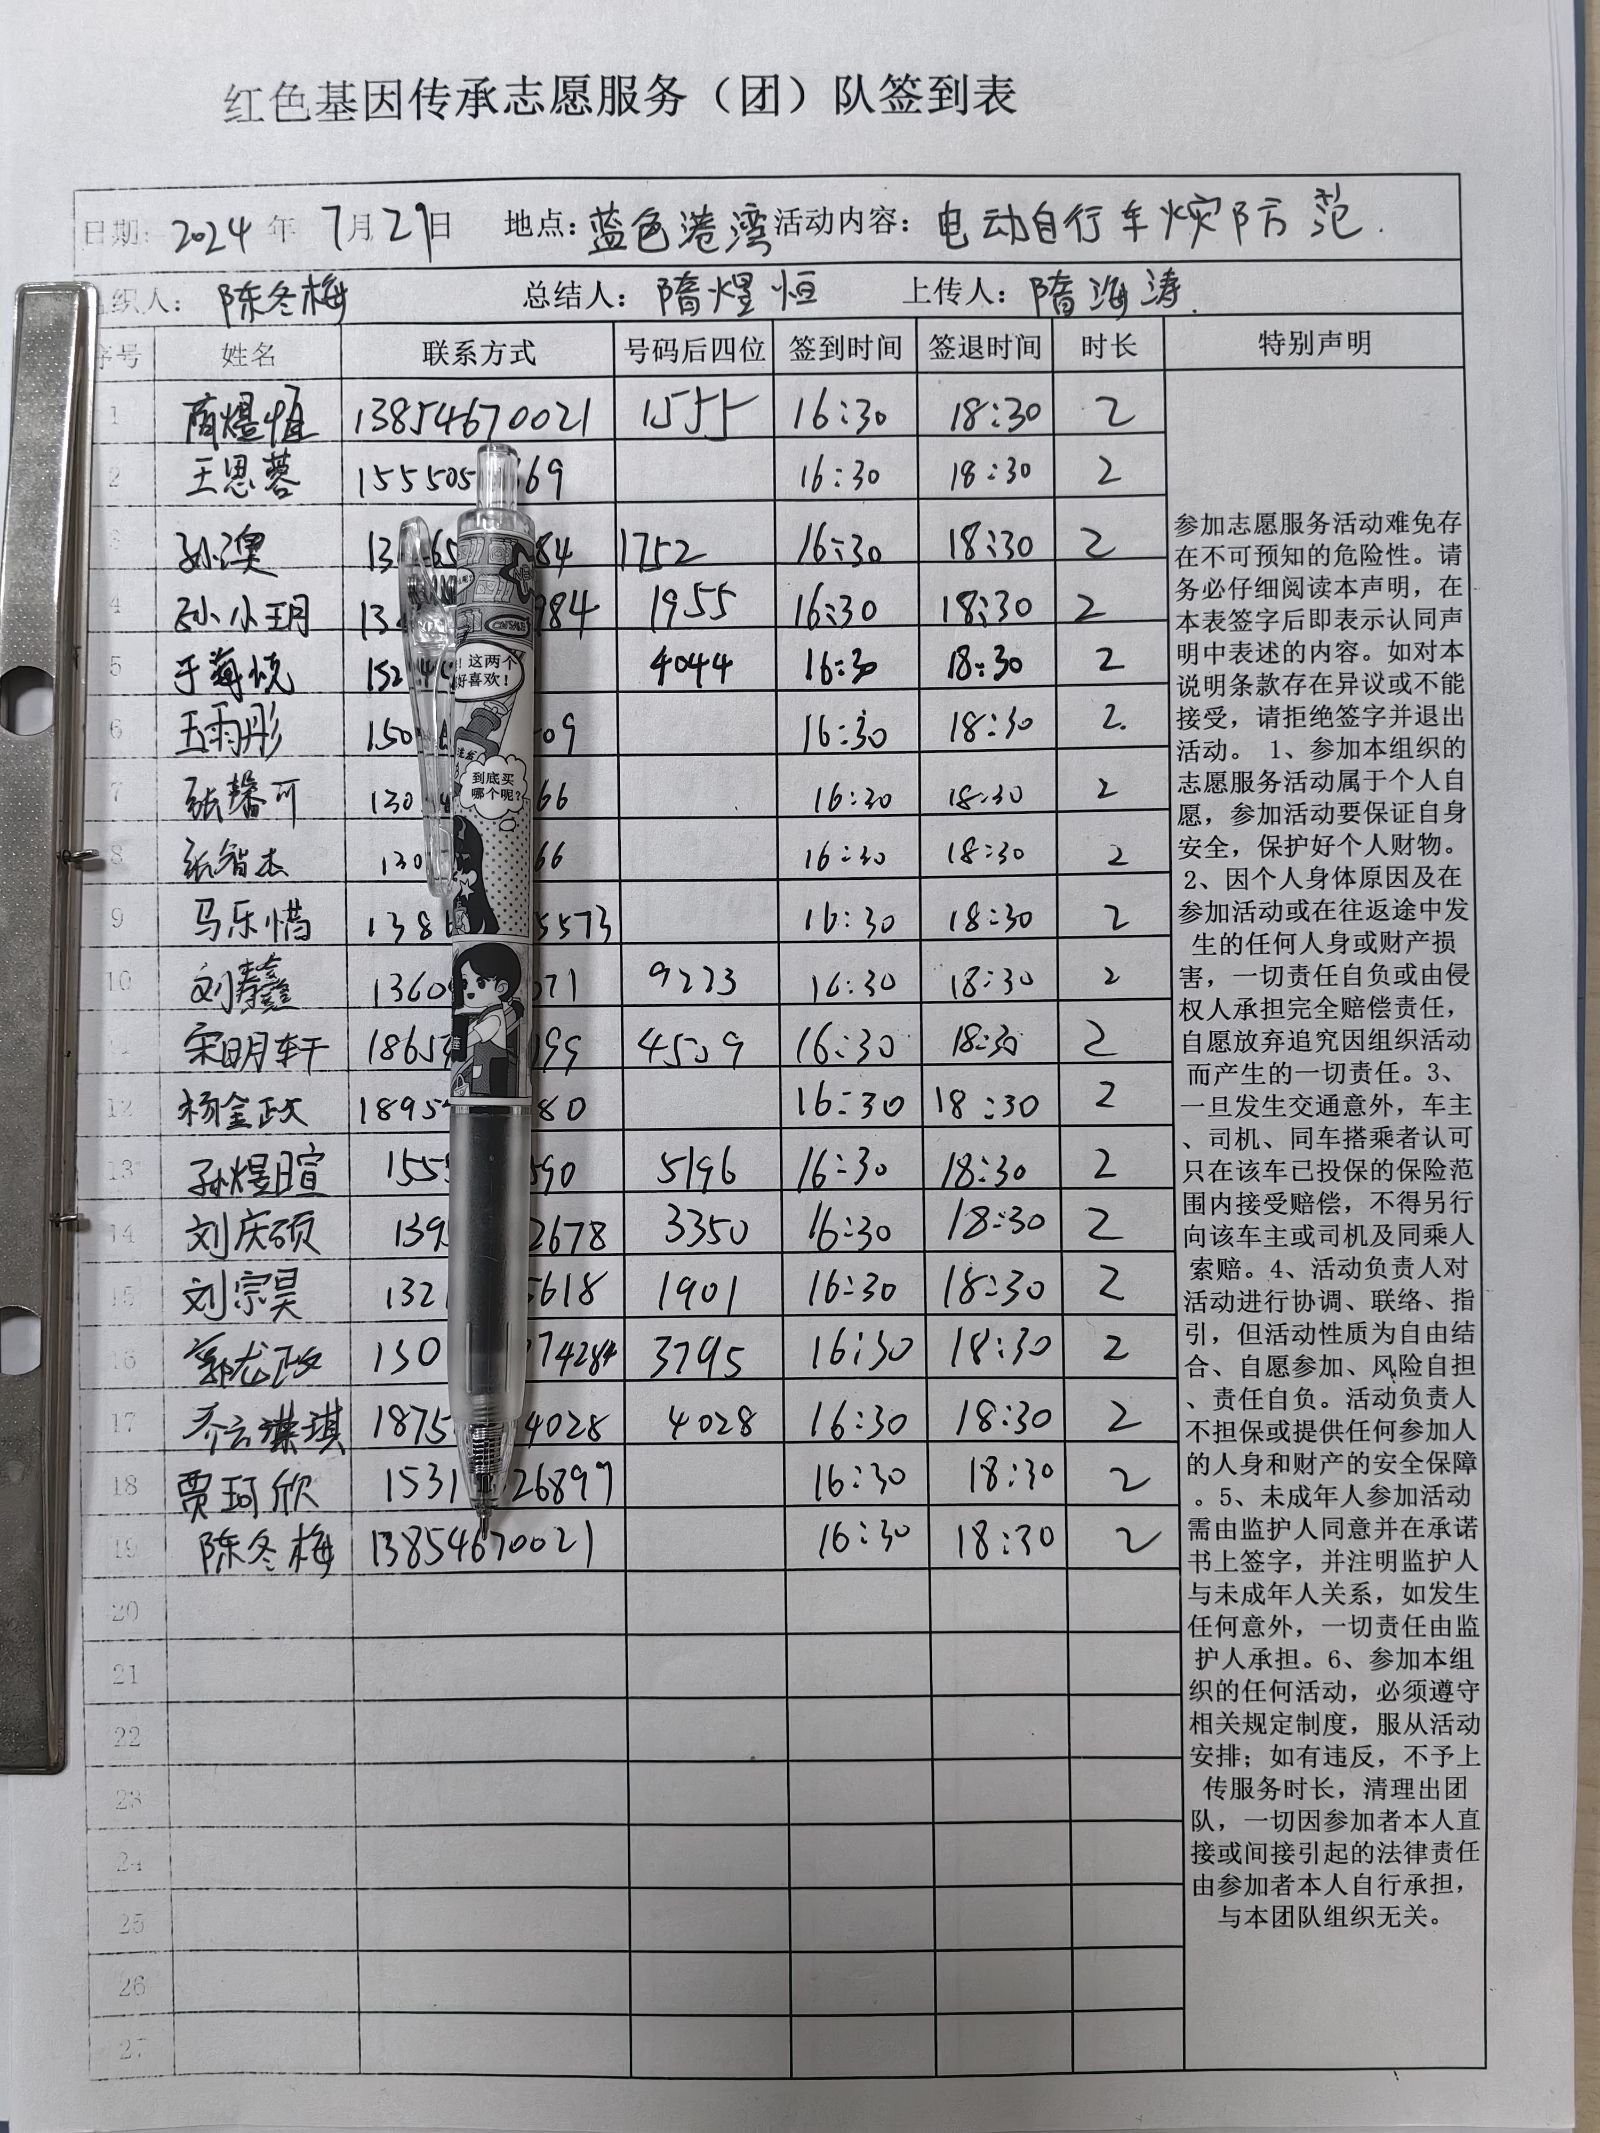 红色基因传承志愿服务（团）队签到表
日期：2024年7月29日 地点：蓝色港湾 活动内容：电动自行车火灾防范.
织人：陈冬梅 总结人：隋煜恒 上传人：隋海涛.
序号 姓名 联系方式 号码后四位 签到时间 签退时间 时长 特别声明
1 隋煜恒 13854670021 1555 16:30 18:30 2
2 王思蓉 155505 69 16:30 18:30 2
3 孙溟 13 65 84 1752 16:30 18:30 2
4 孙小玥 13 984 1955 16:30 18:30 2
5 于海悦 152 4044 16:30 18:30 2
6 王雨彤 150 09 16:30 18:30 2.
7 张馨可 130 66 16:30 18:30 2
8 张智杰 130 66 16:30 18:30 2
9 马乐惜 138 5573 16:30 18:30 2
10 刘春鑫 1360 071 9223 16:30 18:30 2
11 宋明轩 1865 199 4509 16:30 18:30 2
12 杨金政 1895 80 16:30 18:30 2
13 孙煜暄 155 590 5196 16:30 18:30 2
14 刘庆硕 139 2678 3350 16:30 18:30 2
15 刘宗昊 132 5618 1901 16:30 18:30 2
16 郭龙政 130 74284 3795 16:30 18:30 2
17 乔云琪 1875 4028 4028 16:30 18:30 2
18 贾珂欣 1531 26897 16:30 18:30 2
19 陈冬梅 13854670021 16:30 18:30 2
20
21
22
23
24
25
26
27
参加志愿服务活动难免存
在不可预知的危险性。请
务必仔细阅读本声明，在
本表签字后即表示认同声
明中表述的内容。如对本
说明条款存在异议或不能
接受，请拒绝签字并退出
活动。 1、参加本组织的
志愿服务活动属于个人自
愿，参加活动要保证自身
安全，保护好个人财物。
2、因个人身体原因及在
参加活动或在往返途中发
生的任何人身或财产损
害，一切责任自负或由侵
权人承担完全赔偿责任，
自愿放弃追究因组织活动
而产生的一切责任。3、
一旦发生交通意外，车主
、司机、同车搭乘者认可
只在该车已投保的保险范
围内接受赔偿，不得另行
向该车主或司机及同乘人
索赔。4、活动负责人对
活动进行协调、联络、指
引，但活动性质为自由结
合、自愿参加、风险自担
、责任自负。活动负责人
不担保或提供任何参加人
的人身和财产的安全保障
。5、未成年人参加活动
需由监护人同意并在承诺
书上签字，并注明监护人
与未成年人关系，如发生
任何意外，一切责任由监
护人承担。6、参加本组
织的任何活动，必须遵守
相关规定制度，服从活动
安排；如有违反，不予上
传服务时长，清理出团
队，一切因参加者本人直
接或间接引起的法律责任
由参加者本人自行承担，
与本团队组织无关。
！这两个
好喜欢！
到底买
哪个呢？